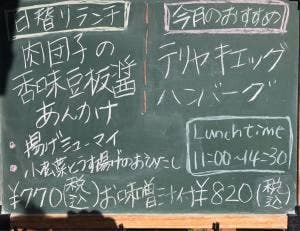 日替りランチ
肉団子の
香味豆板醤
あんかけ
・揚げシューマイ
・小松菜とうす揚げのおひたし
¥770(税込)お味噌汁付
今日のおすすめ
テリヤキエッグ
ハンバーグ
Lunchtime
11:00~14:30
¥820(税込)